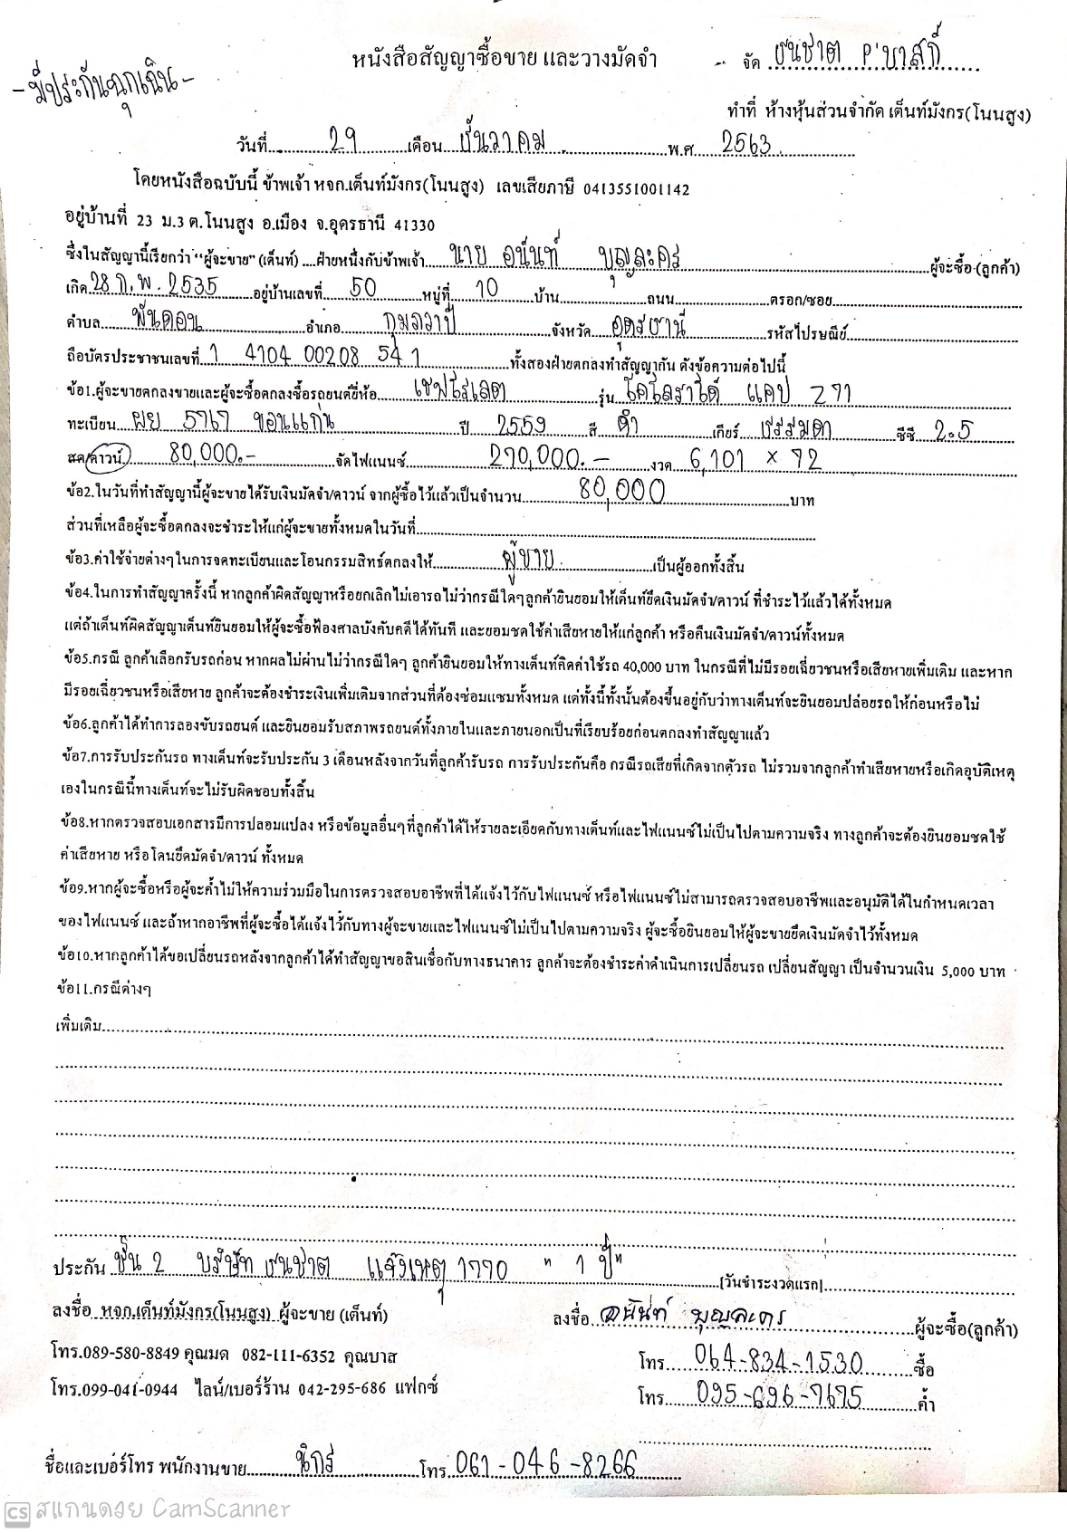 หนังสือสัญญาซื้อขาย และวางมัดจำ
จัด ธนชาต P'บาสก์
-มีประกันฉุกเฉิน-
ทำที่ ห้างหุ้นส่วนจำกัด เต็นท์มังกร(โนนสูง)
วันที่ 29 เดือน ธันวาคม พ.ศ. 2563
โดยหนังสือฉบับนี้ ข้าพเจ้า หจก.เต็นท์มังกร(โนนสูง) เลขเสียภาษี 0413551001142
อยู่บ้านที่ 23 ม.3 ต.โนนสูง อ.เมือง จ.อุดรธานี 41330
ซึ่งในสัญญานี้เรียกว่า "ผู้จะขาย" (เต็นท์) ....ฝ่ายหนึ่งกับข้าพเจ้า นาย อนันท์ บุญละคร ผู้จะซื้อ (ลูกค้า)
เกิด 28 ก.พ. 2535 อยู่บ้านเลขที่ 50 หมู่ที่ 10 บ้าน ถนน ตรอก/ซอย
ตำบล พันดอน อำเภอ กุมภวาปี จังหวัด อุดรธานี รหัสไปรษณีย์
ถือบัตรประชาชนเลขที่ 1 4104 00208 54 1 ทั้งสองฝ่ายตกลงทำสัญญากัน ดังข้อความต่อไปนี้
ข้อ1.ผู้จะขายตกลงขายและผู้จะซื้อตกลงซื้อรถยนต์ยี่ห้อ เชฟโรเลต รุ่น โคโลราโด้ แคป Z71
ทะเบียน ผย 5767 ขอนแก่น ปี 2559 สี ดำ เกียร์ ธรรมดา ซีซี 2.5
สด/ดาวน์ 80,000.- จัดไฟแนนซ์ 270,000.- งวด 6,101 x 72
ข้อ2.ในวันที่ทำสัญญานี้ผู้จะขายได้รับเงินมัดจำ/ดาวน์ จากผู้ซื้อไว้แล้วเป็นจำนวน 80,000 บาท
ส่วนที่เหลือผู้จะซื้อตกลงจะชำระให้แก่ผู้จะขายทั้งหมดในวันที่
ข้อ3.ค่าใช้จ่ายต่างๆในการจดทะเบียนและโอนกรรมสิทธ์ตกลงให้ ผู้ขาย เป็นผู้ออกทั้งสิ้น
ข้อ4.ในการทำสัญญาครั้งนี้ หากลูกค้าผิดสัญญาหรือยกเลิกไม่เอารถไม่ว่ากรณีใดๆลูกค้ายินยอมให้เต็นท์ยึดเงินมัดจำ/ดาวน์ ที่ชำระไว้แล้วได้ทั้งหมด
แต่ถ้าเต็นท์ผิดสัญญาเต็นท์ยินยอมให้ผู้จะซื้อฟ้องศาลบังคับคดีได้ทันที และยอมชดใช้ค่าเสียหายให้แก่ลูกค้า หรือคืนเงินมัดจำ/ดาวน์ทั้งหมด
ข้อ5.กรณี ลูกค้าเลือกรับรถก่อน หากผลไม่ผ่านไม่ว่ากรณีใดๆ ลูกค้ายินยอมให้ทางเต็นท์คิดค่าใช้รถ 40,000 บาท ในกรณีที่ไม่มีรอยเฉี่ยวชนหรือเสียหายเพิ่มเติม และหาก
มีรอยเฉี่ยวชนหรือเสียหาย ลูกค้าจะต้องชำระเงินเพิ่มเติมจากส่วนที่ต้องซ่อมแซมทั้งหมด แต่ทั้งนี้ทั้งนั้นต้องขึ้นอยู่กับว่าทางเต็นท์จะยินยอมปล่อยรถให้ก่อนหรือไม่
ข้อ6.ลูกค้าได้ทำการลองขับรถยนต์ และยินยอมรับสภาพรถยนต์ทั้งภายในและภายนอกเป็นที่เรียบร้อยก่อนตกลงทำสัญญาแล้ว
ข้อ7.การรับประกันรถ ทางเต็นท์จะรับประกัน 3 เดือนหลังจากวันที่ลูกค้ารับรถ การรับประกันคือ กรณีรถเสียที่เกิดจากตัวรถ ไม่รวมจากลูกค้าทำเสียหายหรือเกิดอุบัติเหตุ
เองในกรณีนี้ทางเต็นท์จะไม่รับผิดชอบทั้งสิ้น
ข้อ8.หากตรวจสอบเอกสารมีการปลอมแปลง หรือข้อมูลอื่นๆที่ลูกค้าได้ให้รายละเอียดกับทางเต็นท์และไฟแนนซ์ไม่เป็นไปตามความจริง ทางลูกค้าจะต้องยินยอมชดใช้
ค่าเสียหาย หรือโดนยึดมัดจำ/ดาวน์ ทั้งหมด
ข้อ9.หากผู้จะซื้อหรือผู้จะค้ำไม่ให้ความร่วมมือในการตรวจสอบอาชีพที่ได้แจ้งไว้กับไฟแนนซ์ หรือไฟแนนซ์ไม่สามารถตรวจสอบอาชีพและอนุมัติได้ในกำหนดเวลา
ของไฟแนนซ์ และถ้าหากอาชีพที่ผู้จะซื้อได้แจ้งไว้กับทางผู้จะขายและไฟแนนซ์ไม่เป็นไปตามความจริง ผู้จะซื้อยินยอมให้ผู้จะขายยึดเงินมัดจำไว้ทั้งหมด
ข้อ10.หากลูกค้าได้ขอเปลี่ยนรถหลังจากลูกค้าได้ทำสัญญาขอสินเชื่อกับทางธนาคาร ลูกค้าจะต้องชำระค่าดำเนินการเปลี่ยนรถ เปลี่ยนสัญญา เป็นจำนวนเงิน 5,000 บาท
ข้อ11.กรณีต่างๆ
เพิ่มเติม
ประกัน ชั้น 2 บริษัท ธนชาต แจ้งเหตุ 1770 " 1 ปี" [วันชำระงวดแรก]
ลงชื่อ หจก.เต็นท์มังกร(โนนสูง) ผู้จะขาย (เต็นท์)
ลงชื่อ อนันท์ บุญละคร ผู้จะซื้อ(ลูกค้า)
โทร.089-580-8849 คุณมด 082-111-6352 คุณบาส
โทร 064-834-1530 ซื้อ
โทร.099-041-0944 ไลน์/เบอร์ร้าน 042-295-686 แฟกซ์
โทร 095-696-7675 ค้ำ
ชื่อและเบอร์โทร พนักงานขาย นิกร โทร 061-046-8266
CS สแกนด้วย CamScanner